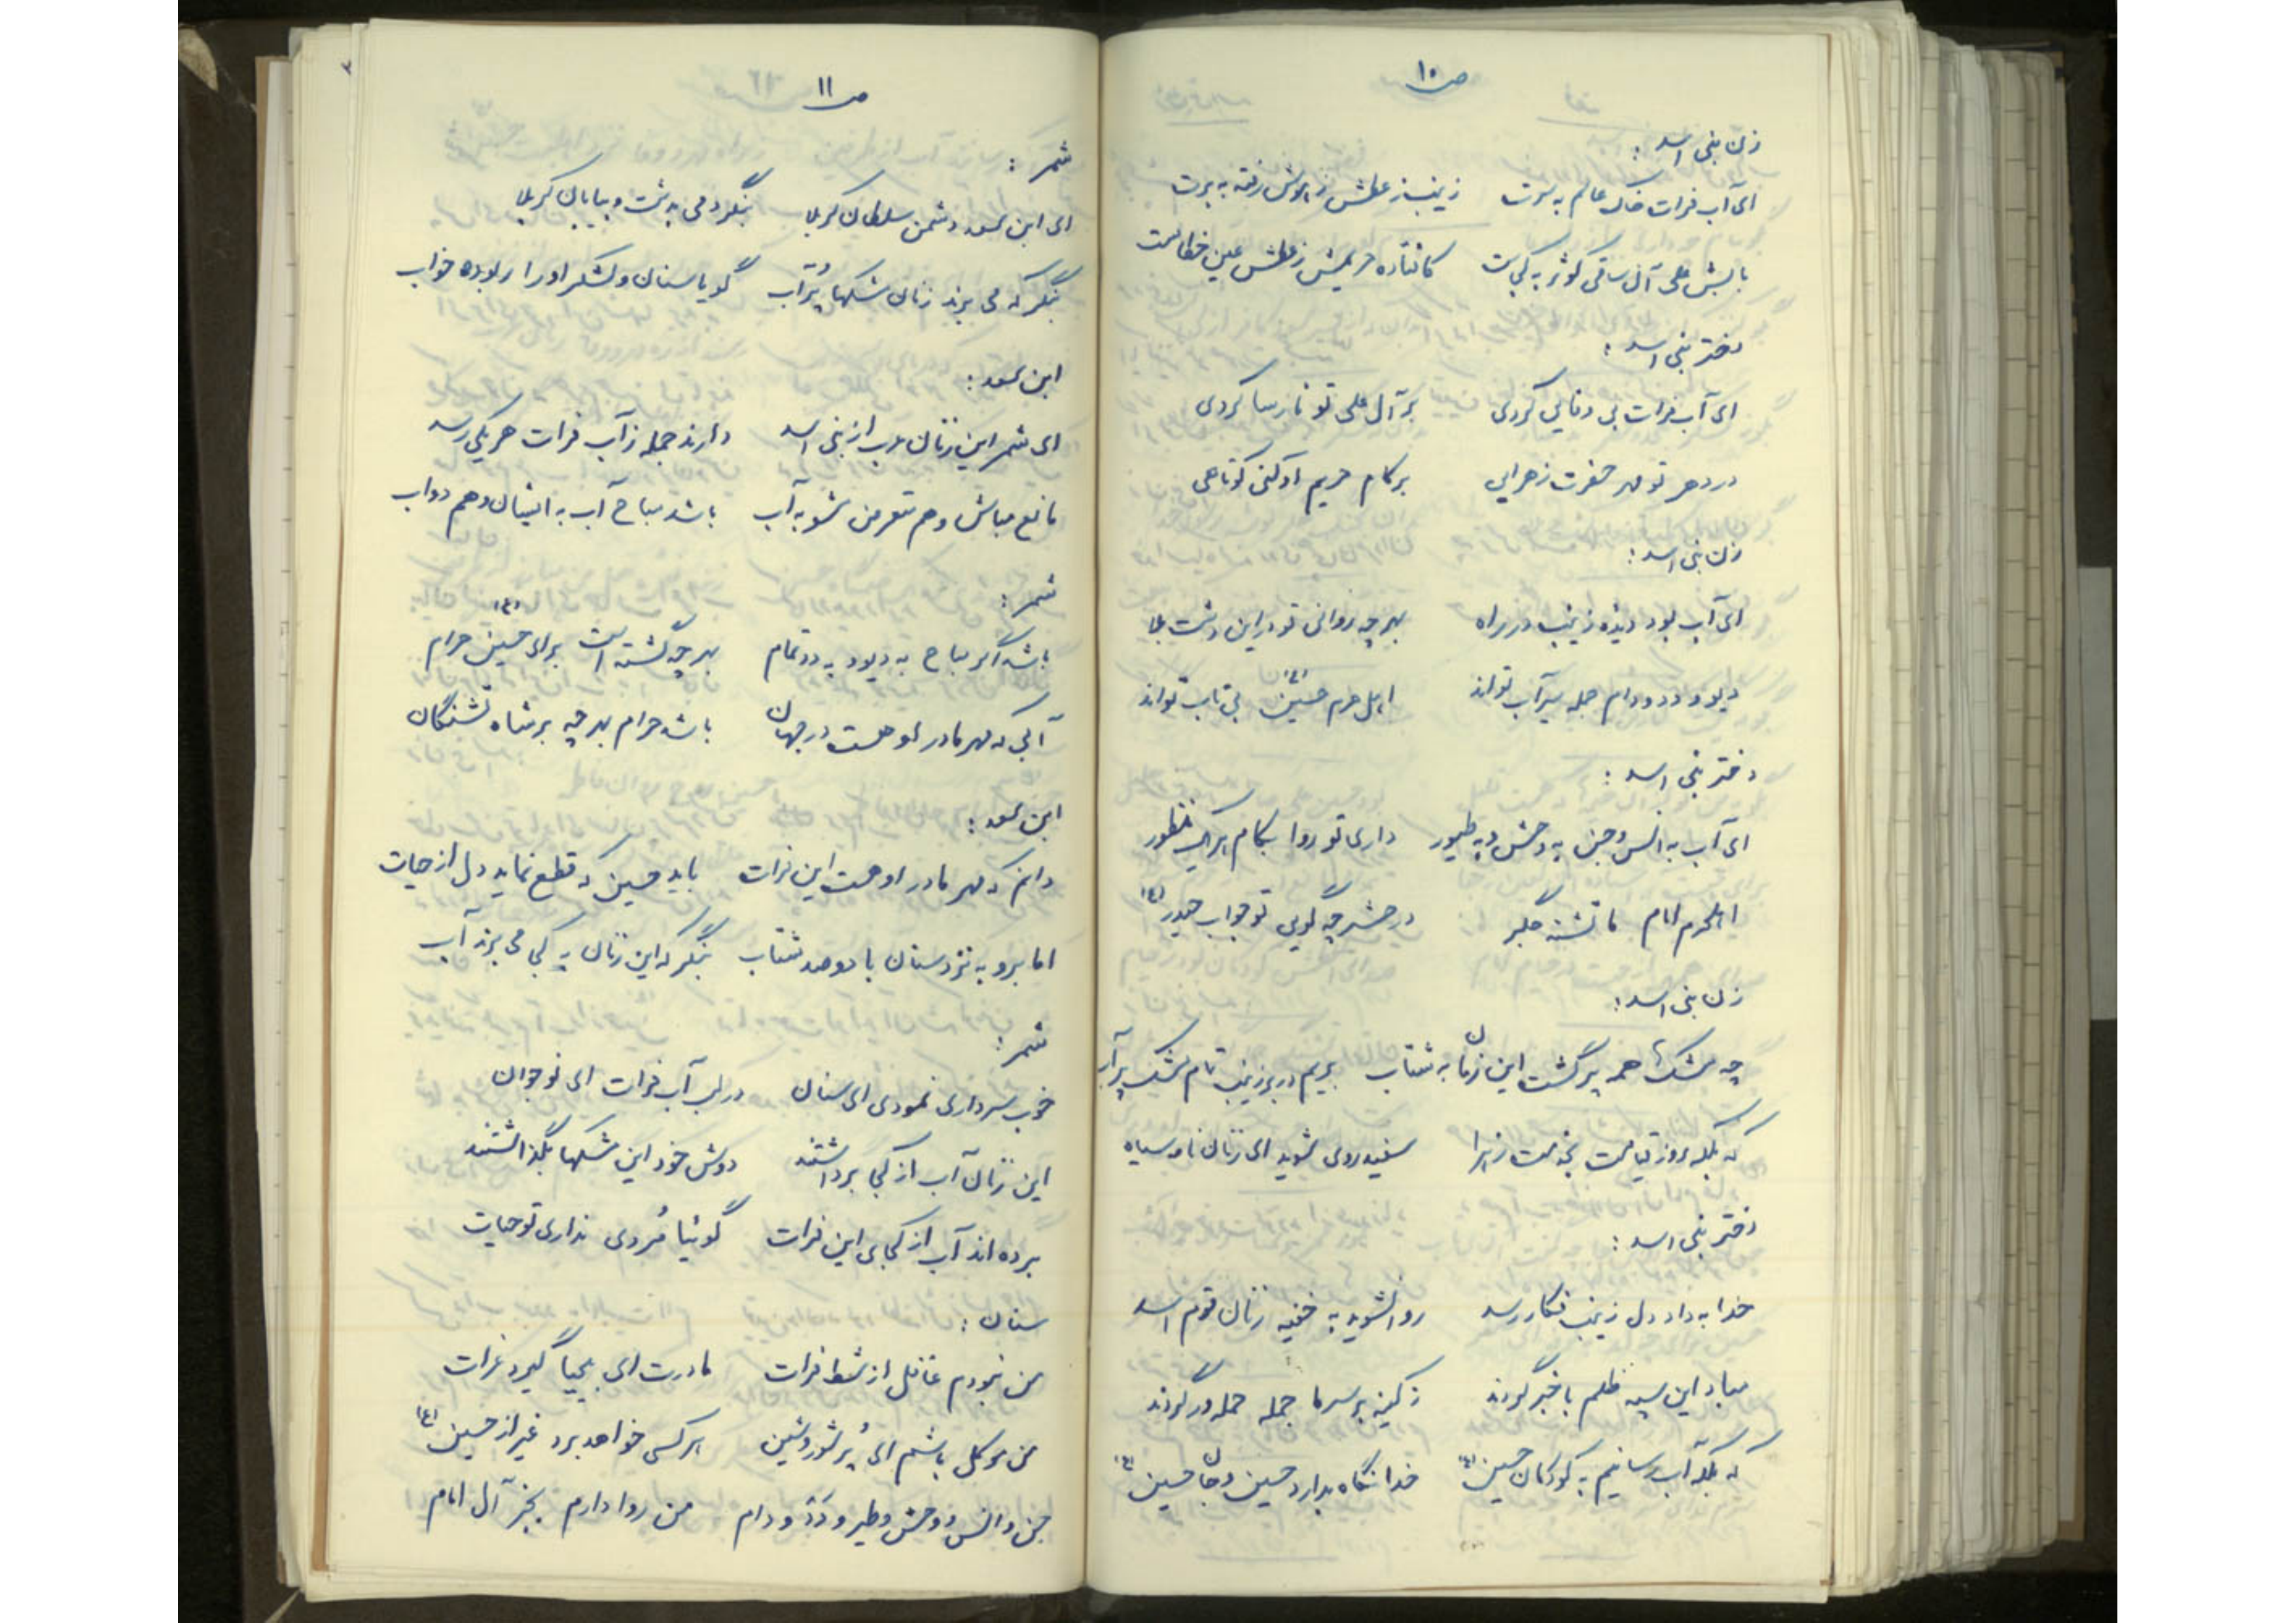 ص ۱۰
زن بنی اسد :
ای آب فرات خاک عالم به سرت زینب ز عطش ز هوش رفته به برت
بابش علی آن ساقی کوثر به کجاست کافتاده حریمش ز عطش عین خطاست
دختر بنی اسد :
ای آب فرات بی وفایی کردی بر آل علی تو نارسا کردی
در دهر تو مهر حضرت زهرایی بر کام حریم او کنی کوتاهی
زن بنی اسد :
ای آب بود دیده زینب در راه بهر چه روانی تو در این دشت بلا
دیو و دد و دام جمله سیرآب تواند اهل حرم حسین (ع) بی تاب تواند
دختر بنی اسد :
ای آب به انس و جن به وحش و به طیور داری تو روا بکام هر یک منظور
اهلحرم امام ما تشنه جگر در حشر چه گویی تو جواب حیدر (ع)
زن بنی اسد :
چه مشکها همه پر گشت این زمان به شتاب بریم در بر زینب تمام مشک پر آب
که بلکه روز قیامت بخدمت زهرا سفید روی شوید ای زنان نامه سیاه
دختر بنی اسد :
خدا به داد دل زینب فکار رسد روانشوید به خفیه زنان قوم اسد
مباد این سپه ظلم با خبر گردند ز کینه بر سر ما جمله حمله ور گردند
که بلکه آب رسانیم به کودکان حسین (ع) خدا نگاه بدارد حسین و جان حسین (ع)
ص ۱۱
شمر :
ای ابن سعد دشمن سلطان کربلا بنگر دمی به دشت و بیابان کربلا
بنگر که می برند زنان مشکها پُر آب گویا سنان و لشکر او را ربوده خواب
ابن سعد :
ای شمر این زنان عرب از بنی اسد دارند جمله ز آب فرات هر یکی رسد
مانع مباش و هم متعرض مشو به آب باشد مباح آب به ایشان و هم دواب
شمر :
باشد اگر مباح به دیو و به دد تمام بهر چه گشته است برای حسین (ع) حرام
آبی که مهر مادر او هست در جهان باشد حرام بهر چه بر شاه تشنگان
ابن سعد :
دانم که مهر مادر او هست این فرات باید حسین که قطع نماید دل از حیات
اما برو به نزد سنان با دوصد شتاب بنگر که این زنان به کجا می برند آب
شمر :
خوب سرداری نمودی ای سنان در لب آب فرات ای نوجوان
این زنان آب از کجا برداشتند دوش خود این مشکها بگذاشتند
برده اند آب از کجای این فرات گوئیا مُردی نداری تو حیات
سنان :
من نبودم غافل از شط فرات مادرت ای بیحیا گیرد عزات
من موکل باشم ای پُر شور و شین هر کسی خواهد برد غیر از حسین (ع)
جن و انس و وحش و طیر و دَد و دام من روا دارم بجز آل امام